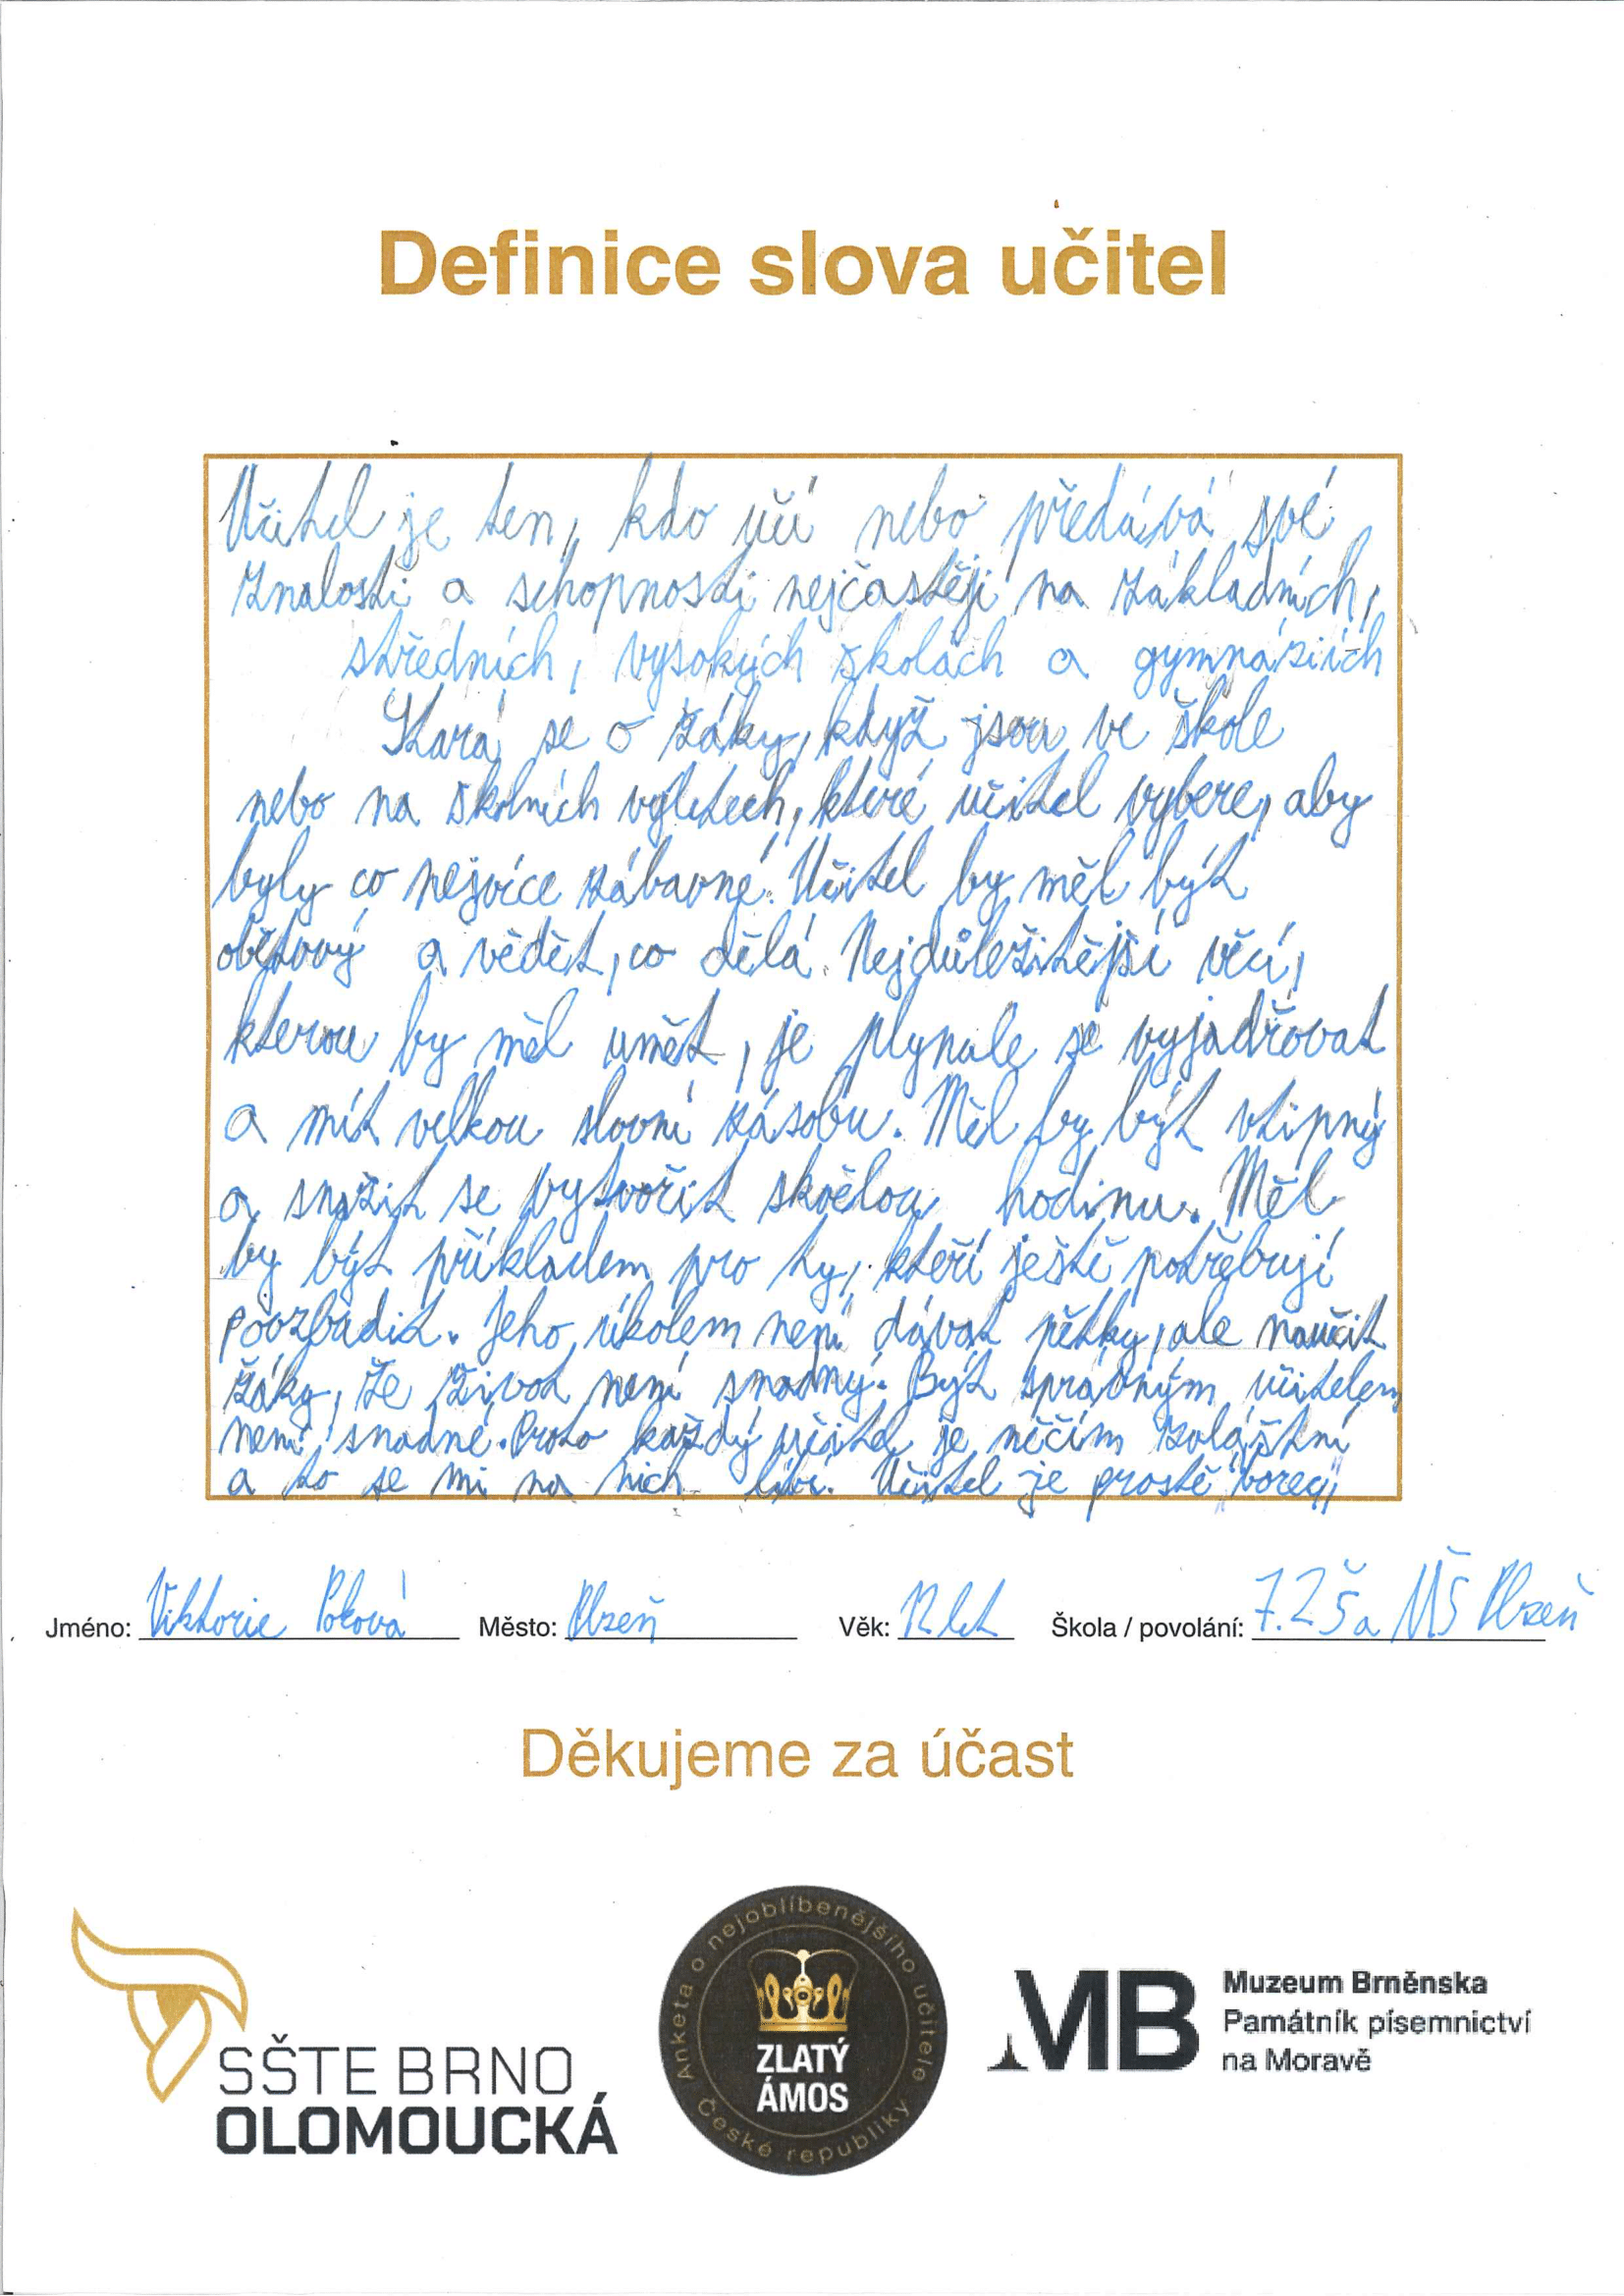 Definice slova učitel
Učitel je ten, kdo učí nebo předává své
znalosti a schopnosti nejčastěji na základních,
středních, vysokých školách a gymnáziích
Stará se o žáky, když jsou ve škole
nebo na školních výletech, které učitel vybere, aby
byly co nejvíce zábavné. Učitel by měl být
obětavý a vědět, co dělá. Nejdůležitější věcí,
kterou by měl umět, je plynule se vyjadřovat
a mít velkou slovní zásobu. Měl by být vtipný
a snažit se vytvořit skvělou hodinu. Měl
by být příkladem pro ty, kteří ještě potřebují
povzbudit. Jeho úkolem není dávat pětky, ale naučit
žáky, že život není snadný. Být správným učitelem
není snadné. Proto každý učitel je něčím zvláštní
a to se mi na nich líbí. Učitel je prostě "borec"
Jméno: Viktorie Město: Plzeň Věk: 12 let Škola / povolání: 7. ZŠ a MŠ Plzeň
Děkujeme za účast
SŠTE BRNO
OLOMOUCKÁ
Anketa o nejoblíbenějšího učitele České republiky
ZLATÝ
ÁMOS
MB
Muzeum Brněnska
Památník písemnictví
na Moravě